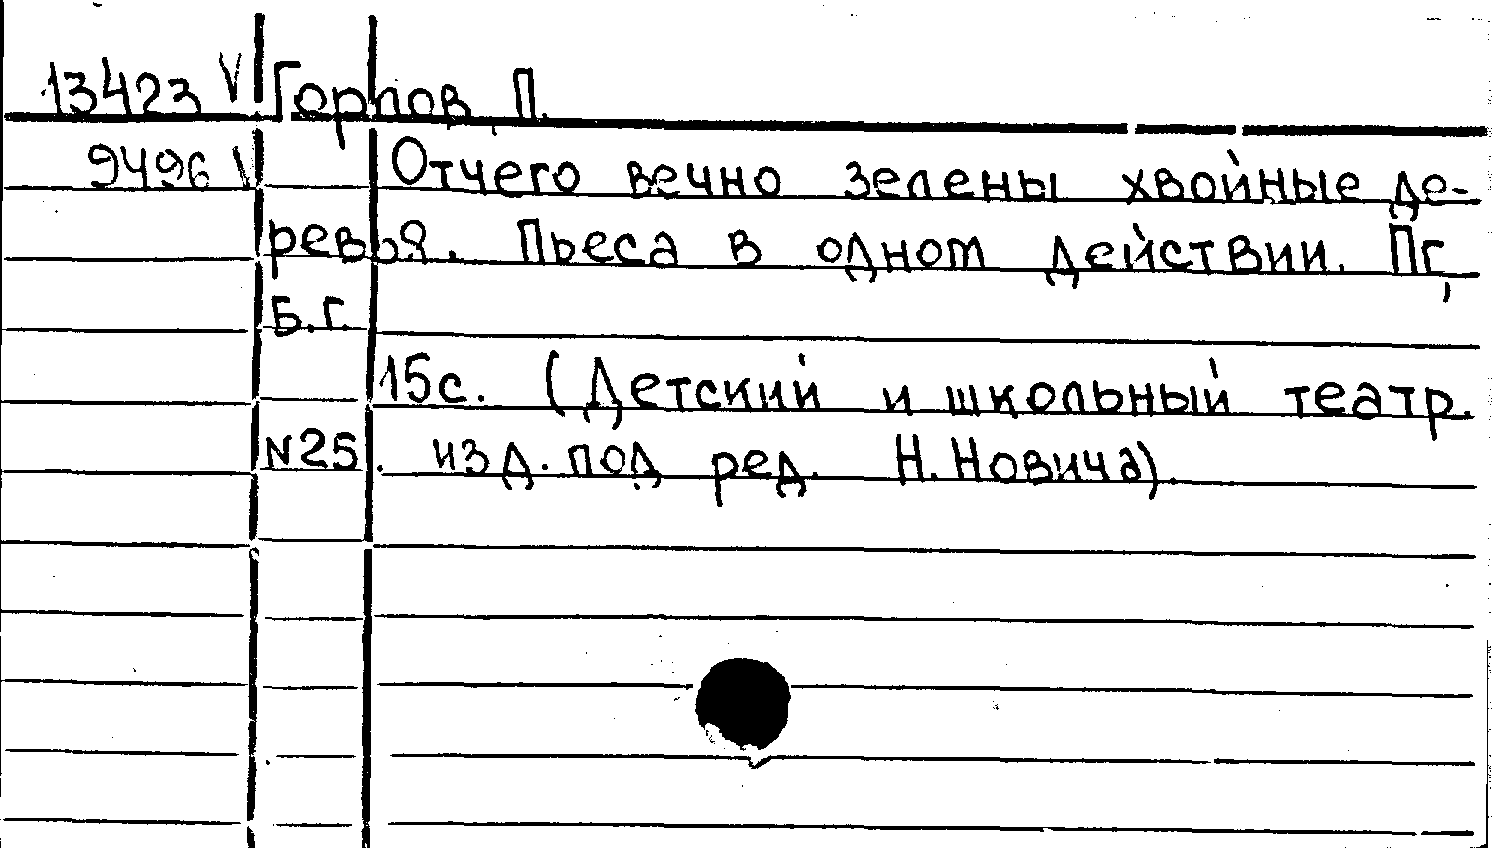 13423 V Горлов, П.
9496 V Отчего вечно зелены хвойные де-
ревья. Пьеса в одном действии. Пг,
Б.г.
15с. (Детский и школьный театр.
N25. изд. под ред. Н. Новича).